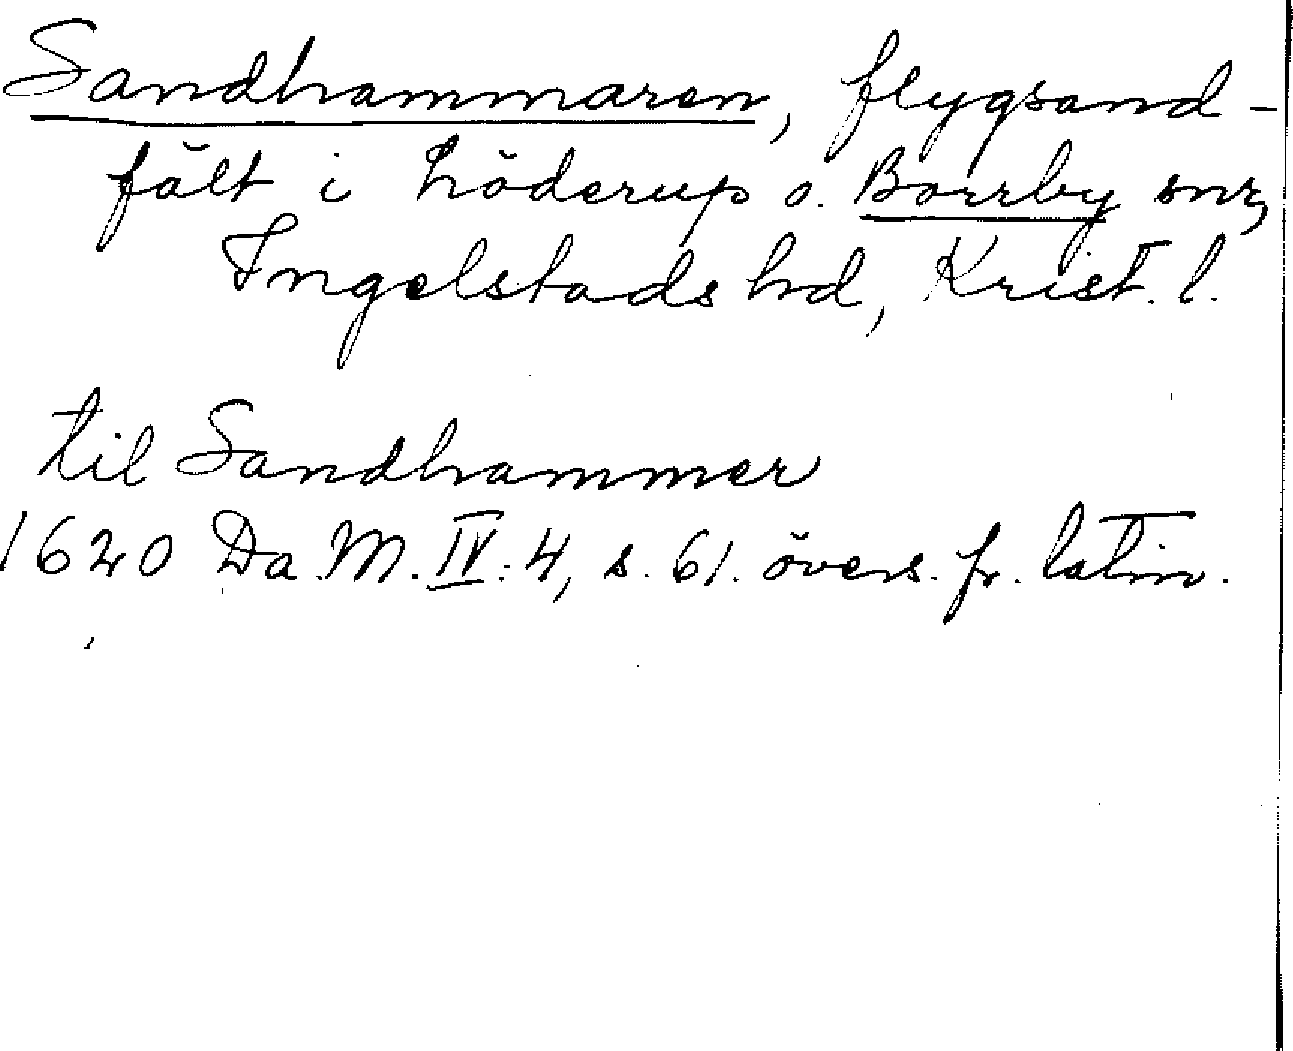 Sandhammaren, flygsand-
fält i Löderup o. Borrby snr,
Ingelstads hd, Krist. l.
til Sandhammer
1620 Da. M. IV: 4, s. 61. övers. fr. latin.